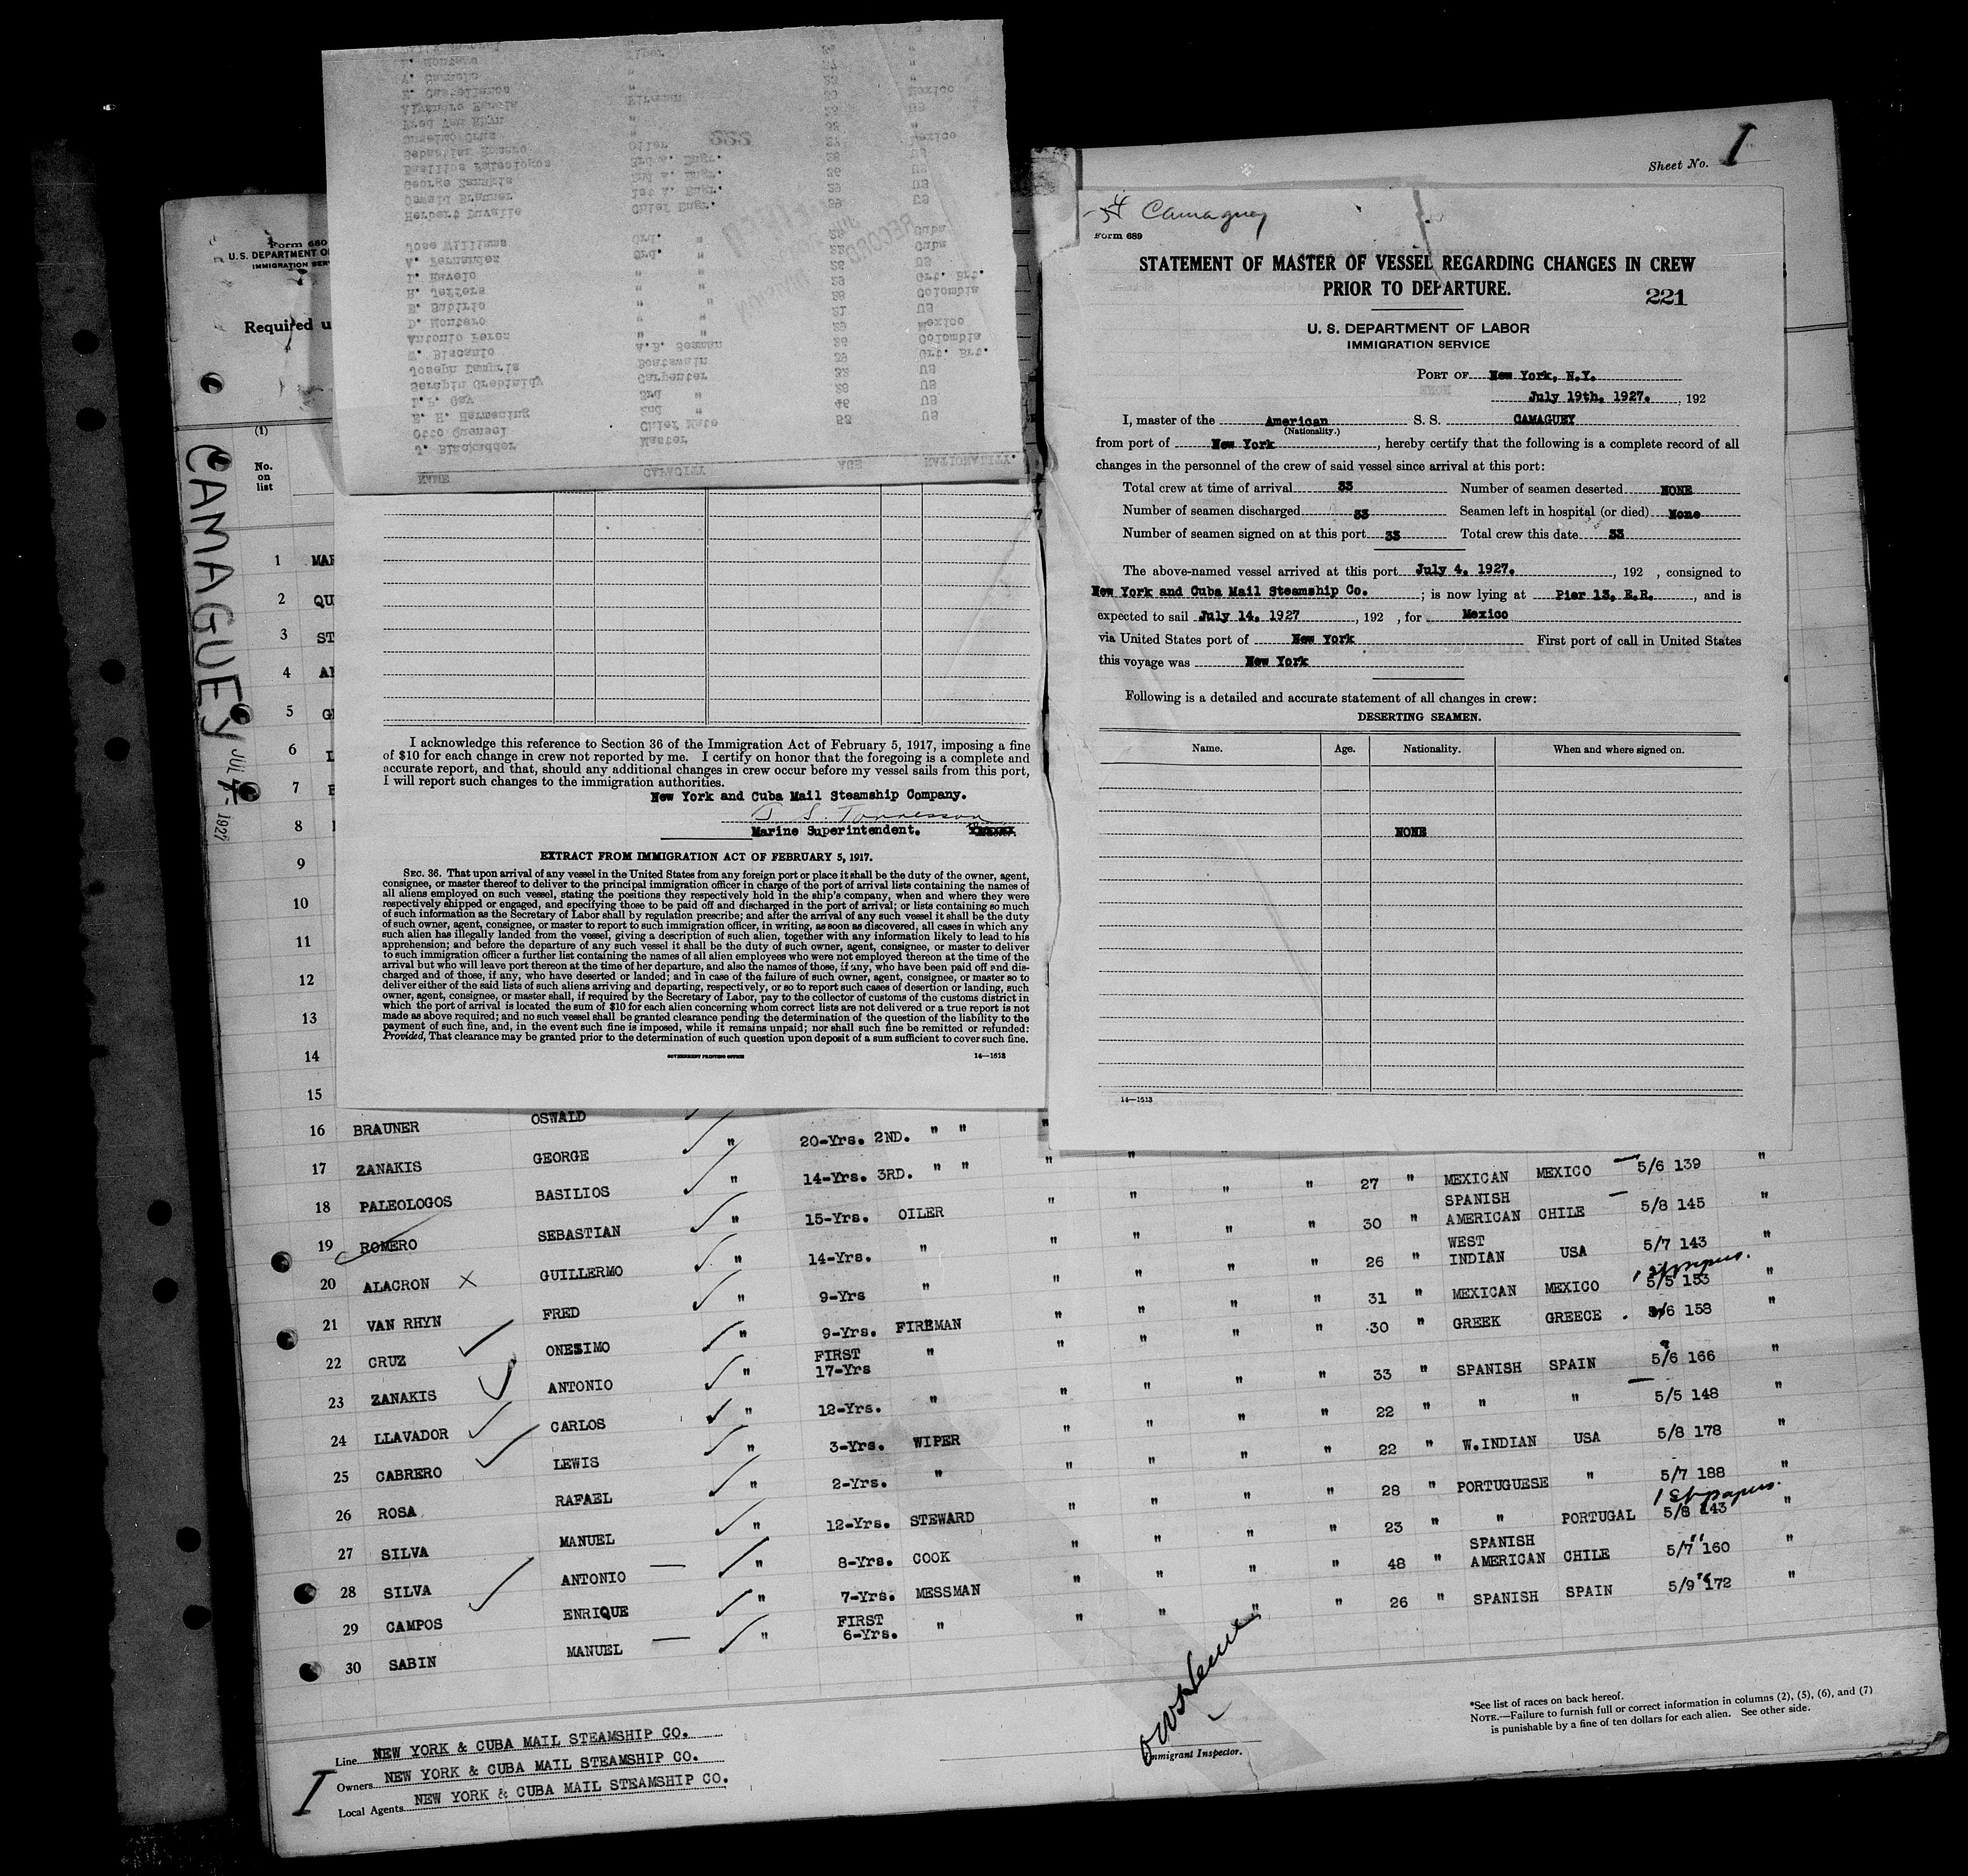 Sheet No. I
Form 680
U. S. DEPARTMENT OF
IMMIGRATION SER
Required u
(1)
No.
on
list
CAMAGUEY
JUL 4- 1927
NAME CAPACITY AGE NATIONALITY.
J. Blackadder Master
Otto Quensel Chief Mate 53 US
E. H. Hermening 2nd " 46 US
L.P. Gay 3rd " 28 US
Carpenter 32 US
Joseph Lampris Boatswain 39 Grt. Brt.
A.B. Seaman 36 Colombia
Antonio Perez " " 29 Mexico
D. Montero " " 21 US
E. Babirio " " 28 Colombia
H. Jeffers " " 29 Grt. Brt.
" " 26 US
A. Fernandez Ord. " Cuba
Jose Williams Ord. " Cuba
Chief Engr. 39 US
Oswald Brauner 1st A. Engr. 29 US
George Zanakis 36 US
Basilios Paleologos 3rd A. Engr. 28 US
Sebastian Romero Oiler 27 Mexico
222
Onesimo Cruz
Fred Van Rhyn US
Fireman Mexico
E. Castellanos
Wiper
I acknowledge this reference to Section 36 of the Immigration Act of February 5, 1917, imposing a fine
of $10 for each change in crew not reported by me. I certify on honor that the foregoing is a complete and
accurate report, and that, should any additional changes in crew occur before my vessel sails from this port,
I will report such changes to the immigration authorities.
New York and Cuba Mail Steamship Company.
Marine Superintendent.
EXTRACT FROM IMMIGRATION ACT OF FEBRUARY 5, 1917.
SEC. 36. That upon arrival of any vessel in the United States from any foreign port or place it shall be the duty of the owner, agent,
consignee, or master thereof to deliver to the principal immigration officer in charge of the port of arrival lists containing the names of
all aliens employed on such vessel, stating the positions they respectively hold in the ship's company, when and where they were
respectively shipped or engaged, and specifying those to be paid off and discharged in the port of arrival; or lists containing so much
of such information as the Secretary of Labor shall by regulation prescribe; and after the arrival of any such vessel it shall be the duty
of such owner, agent, consignee, or master to report to such immigration officer, in writing, as soon as discovered, all cases in which any
such alien has illegally landed from the vessel, giving a description of such alien, together with any information likely to lead to his
apprehension; and before the departure of any such vessel it shall be the duty of such owner, agent, consignee, or master to deliver
to such immigration officer a further list containing the names of all alien employees who were not employed thereon at the time of the
arrival but who will leave port thereon at the time of her departure, and also the names of those, if any, who have been paid off and dis-
charged and of those, if any, who have deserted or landed; and in case of the failure of such owner, agent, consignee, or master so to
deliver either of the said lists of such aliens arriving and departing, respectively, or so to report such cases of desertion or landing, such
owner, agent, consignee, or master shall, if required by the Secretary of Labor, pay to the collector of customs of the customs district in
which the port of arrival is located the sum of $10 for each alien concerning whom correct lists are not delivered or a true report is not
made as above required; and no such vessel shall be granted clearance pending the determination of the question of the liability to the
payment of such fine, and, in the event such fine is imposed, while it remains unpaid; nor shall such fine be remitted or refunded:
Provided, That clearance may be granted prior to the determination of such question upon deposit of a sum sufficient to cover such fine.
GOVERNMENT PRINTING OFFICE 14—1613
Camaguey
Form 689
STATEMENT OF MASTER OF VESSEL REGARDING CHANGES IN CREW
PRIOR TO DEPARTURE.
221
U. S. DEPARTMENT OF LABOR
IMMIGRATION SERVICE
PORT OF New York, N.Y.
July 19th, 1927. , 192
I, master of the American S. S. CAMAGUEY
(Nationality.)
from port of New York , hereby certify that the following is a complete record of all
changes in the personnel of the crew of said vessel since arrival at this port:
Total crew at time of arrival 33 Number of seamen deserted NONE
Number of seamen discharged 33 Seamen left in hospital (or died) None
Number of seamen signed on at this port 33 Total crew this date 33
The above-named vessel arrived at this port July 4, 1927. , 192 , consigned to
New York and Cuba Mail Steamship Co. ; is now lying at Pier 13, E.R. , and is
expected to sail July 14, 1927 , 192 , for Mexico
via United States port of New York First port of call in United States
this voyage was New York
Following is a detailed and accurate statement of all changes in crew:
DESERTING SEAMEN.
Name. Age. Nationality. When and where signed on.
NONE
14—1613
1 MAR
2 QU
3 ST
4 AL
5 GE
6
7
8
9
10
11
12
13
14
15
16 BRAUNER OSWALD
17 ZANAKIS GEORGE " 20-Yrs. 2ND. " " "
18 PALEOLOGOS BASILIOS " 14-Yrs. 3RD. " " " "
19 ROMERO SEBASTIAN " 15-Yrs. OILER " " " " 27 " MEXICAN MEXICO 5/6 139 "
20 ALACRON X GUILLERMO " 14-Yrs. " " " " " 30 " SPANISH AMERICAN CHILE 5/8 145 "
21 VAN RHYN FRED " 9-Yrs " " " " " 26 " WEST INDIAN USA 5/7 143 "
1 St papers.
22 CRUZ ONESIMO " 9-Yrs. FIREMAN " " " " 31 " MEXICAN MEXICO 5/5 153 "
23 ZANAKIS ANTONIO " FIRST 17-Yrs " " " " " 30 " GREEK GREECE 5/6 158 "
24 LLAVADOR CARLOS " 12-Yrs. " " " " " 33 " SPANISH SPAIN 5/6 166 "
25 CABRERO LEWIS " 3-Yrs. WIPER " " " " 22 " " " 5/5 148 "
26 ROSA RAFAEL " 2-Yrs. " " " " " 22 " W.INDIAN USA 5/8 178 "
27 SILVA MANUEL " 12-Yrs. STEWARD " " " " 28 " PORTUGUESE " 5/7 188 "
1 St papers.
28 SILVA ANTONIO " 8-Yrs. COOK " " " " 23 " " PORTUGAL 5/8 143 "
29 CAMPOS ENRIQUE " 7-Yrs. MESSMAN " " " " 48 " SPANISH AMERICAN CHILE 5/7 160 "
30 SABIN MANUEL " FIRST 6-Yrs. " " " " " 26 " SPANISH SPAIN 5/9 172 "
Line NEW YORK & CUBA MAIL STEAMSHIP CO.
Owners NEW YORK & CUBA MAIL STEAMSHIP CO.
Local Agents NEW YORK & CUBA MAIL STEAMSHIP CO.
I
Immigrant Inspector.
*See list of races on back hereof.
NOTE.—Failure to furnish full or correct information in columns (2), (5), (6), and (7)
is punishable by a fine of ten dollars for each alien. See other side.